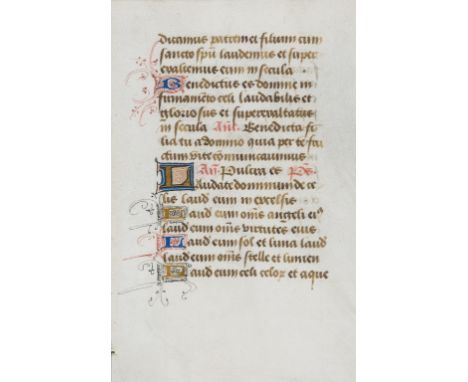 dicamus patrem et filium cum
sancto spu laudemus et super
exaltemus eum in secula
Benedictus es domine in
firmamento celi laudabilis et
gloriosus et superexaltatus
in secula Añ. Benedicta fi
lia tu a domino quia per te fru
ctum vite communicauimus
Añ Pulcra es Ps.
Laudate dominum de ce
lis laud eum in excelsis
Laud eum oms angeli ei9
laud eum oms virtutes eius
Laud eum sol et luna laud
laud eum oms stelle et lumen
Laud eum celi celor et aque